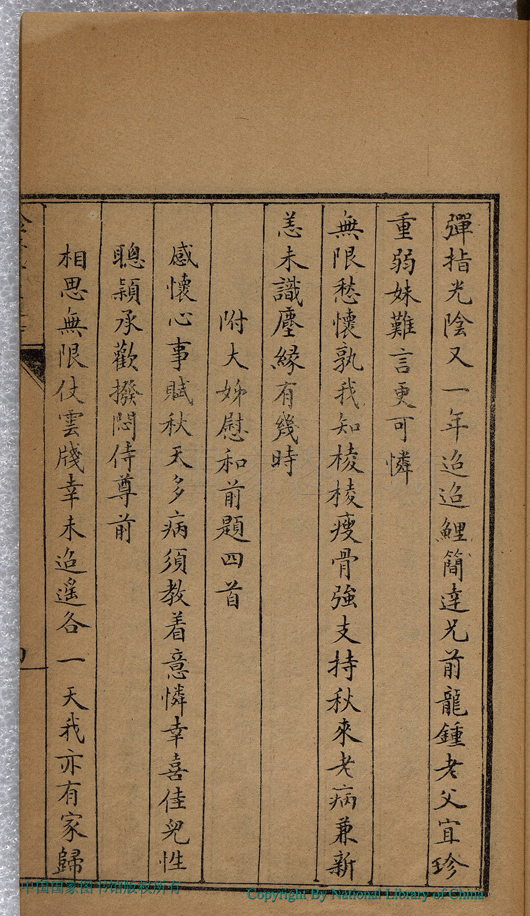 彈指光陰又一年迢迢鯉簡達兄前龍鍾老父宜珍
重弱妹難言更可憐
無限愁懷孰我知棱棱瘦骨強支持秋來老病兼新
恙未識塵緣有幾時
附大姊慰和前題四首
感懷心事賦秋天多病須教着意憐幸喜佳兒性
聰穎承歡撥悶侍尊前
相思無限仗雲牋幸未迢遥各一天我亦有家歸
中国国家图书馆版权所有
Copyright By National Library of China